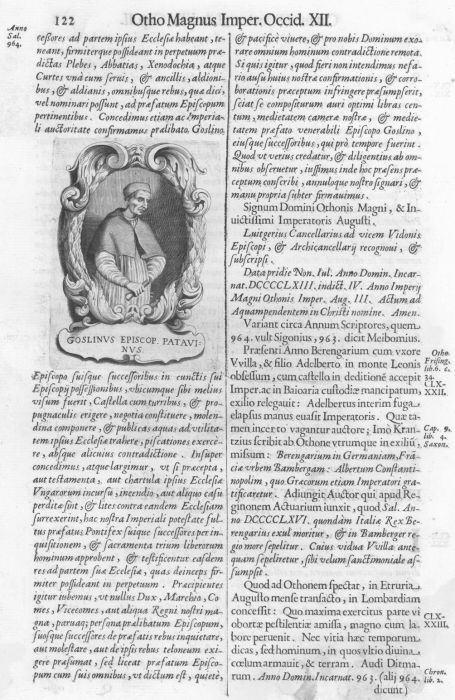 122 Otho Magnus Imper. Occid. XII.
Anno
Sal.
964.
cessores ad partem ipsius Ecclesiæ habeant, te-
neant, firmiterque possideant in perpetuum præ-
dictas Plebes, Abbatias, Xenodochia, atque
Curtes vnà cum seruis, & ancillis, aldioni-
bus, & aldianis, omnibusque rebus, quæ dici,
vel nominari possunt, ad præfatum Episcopum
pertinentibus. Concedimus etiam ac Imperia-
li auctoritate confirmamus prælibato. Goslino
GOSLINVS EPISCOP. PATAVI-
NVS.
Episcopo suisque successoribus in cunctis sui
Episcopij possessionibus, vbicumque sibi melius
visum fuerit, Castella cum turribus, & pro-
pugnaculis erigere, negotia constituere, molen-
dina componere, & publicas aquas ad vtilita-
tem ipsius Ecclesiæ trahere, piscationes exercè-
re, absque alicuius contradictione. Insuper
concedimus, atque largimur, vt si præcepta,
aut testamenta, aut chartula ipsius Ecclesiæ
Vngarorum incursu, incendio, aut aliquo casu
perdita sint, & lites contra eandem Ecclesiam
surrexerint, hac nostra Imperiali potestate ful-
tus præfatus Pontifex suique successores per in-
quisitionem, & sacramenta trium liberorum
hominum approbent, & testificentur easdem
res ad partem suæ Ecclesiæ, quas deinceps fir-
miter possideant in perpetuum. Præcipientes
igitur iubemus, vt nullus Dux, Marchio, Co-
mes, Vicecomes, aut aliqua Regni nostri ma-
gna, paruaq; persona prælibatum Episcopum,
suosque successores de præfatis rebus inquietare,
aut molestare, aut de ipsis rebus teloneum exi-
gere præsumat, sed liceat præfatum Episco-
pum cum suis omnibus, vt dictum est, quietè,
& pacificè viuere, & pro nobis Dominum exo-
rare omnium hominum contradictione remota.
Si quis igitur, quod fieri non intendimus nefa-
rio ausu huius nostræ confirmationis, & corro-
borationis præceptum infringere præsumpserit,
sciat se compositurum auri optimi libras cen-
tum, medietatem cameræ nostræ, & medie-
tatem præfato venerabili Episcopo Goslino,
eiusque successoribus, qui pro tempore fuerint.
Quod vt verius credatur, & diligentius ab om-
nibus obseruetur, iussimus inde hoc præsens præ-
ceptum conscribi, annuloque nostro signari, &
manu propria subter firmauimus.
Signum Domini Othonis Magni, & In-
uictissimi Imperatoris Augusti.
Luitgerius Cancellarius ad vicem Vidonis
Episcopi, & Archicancellarij recognoui, &
subscripsi.
Data pridie Non. Iul. Anno Domin. Incar-
nat. DCCCCLXIII. indict. IV. Anno Imperij
Magni Othonis Imper. Aug. III. Actum ad
Aquampendentem in Christi nomine. Amen.
Variant circa Annum Scriptores, quem
964. vult Sigonius, 963. dicit Meibomius.
Præsenti Anno Berengarium cum vxore
Vvilla, & filio Adelberto in monte Leonis
obsessum, cum castello in deditionē accepit
Imper. ac in Baioaria custodiæ mancipatum,
exilio relegauit: Adelbertus interim fuga
elapsus manus euasit Imperatoris. Quæ ta-
men incerto vagantur auctore; Imò Kran-
tzius scribit ab Othone vtrumque in exiliū,
missum: Berengarium in Germaniam, Frā-
ciæ vrbem Bambergam: Albertum Constanti-
nopolim, quo Græcorum etiam Imperatori gra-
tificaretur. Adiungit Auctor qui apud Re-
ginonem Actuarium iunxit, quod Sal. An-
no DCCCCLXVI. quondam Italiæ Rex Be-
rengarius exul moritur, & in Bamberge re-
gio more sepelitur. Cuius vidua Vvilla ante-
quam sepeliretur, sibi velum sanctimoniale as-
sumpsit.
Quod ad Othonem spectat, in Etruria
Augusto mense transacto, in Lombardiam
concessit: Quo maxima exercitus parte vi
obortæ pestilentiæ amissa, magno cum la-
bore peruenit. Nec vitia hæc temporum
dicas, sed hominum, in quos vltio diuina
cœlum armauit, & terram. Audi Ditma-
rum. Anno Domin. Incarnat. 963. (alij 964.
dicunt)
Otho.
Frising.
lib. 6. c.
34.
CLX-
XXII.
Cap. 9.
lib. 4.
Saxon.
CLX-
XXIII.
Chron.
lib. 2.